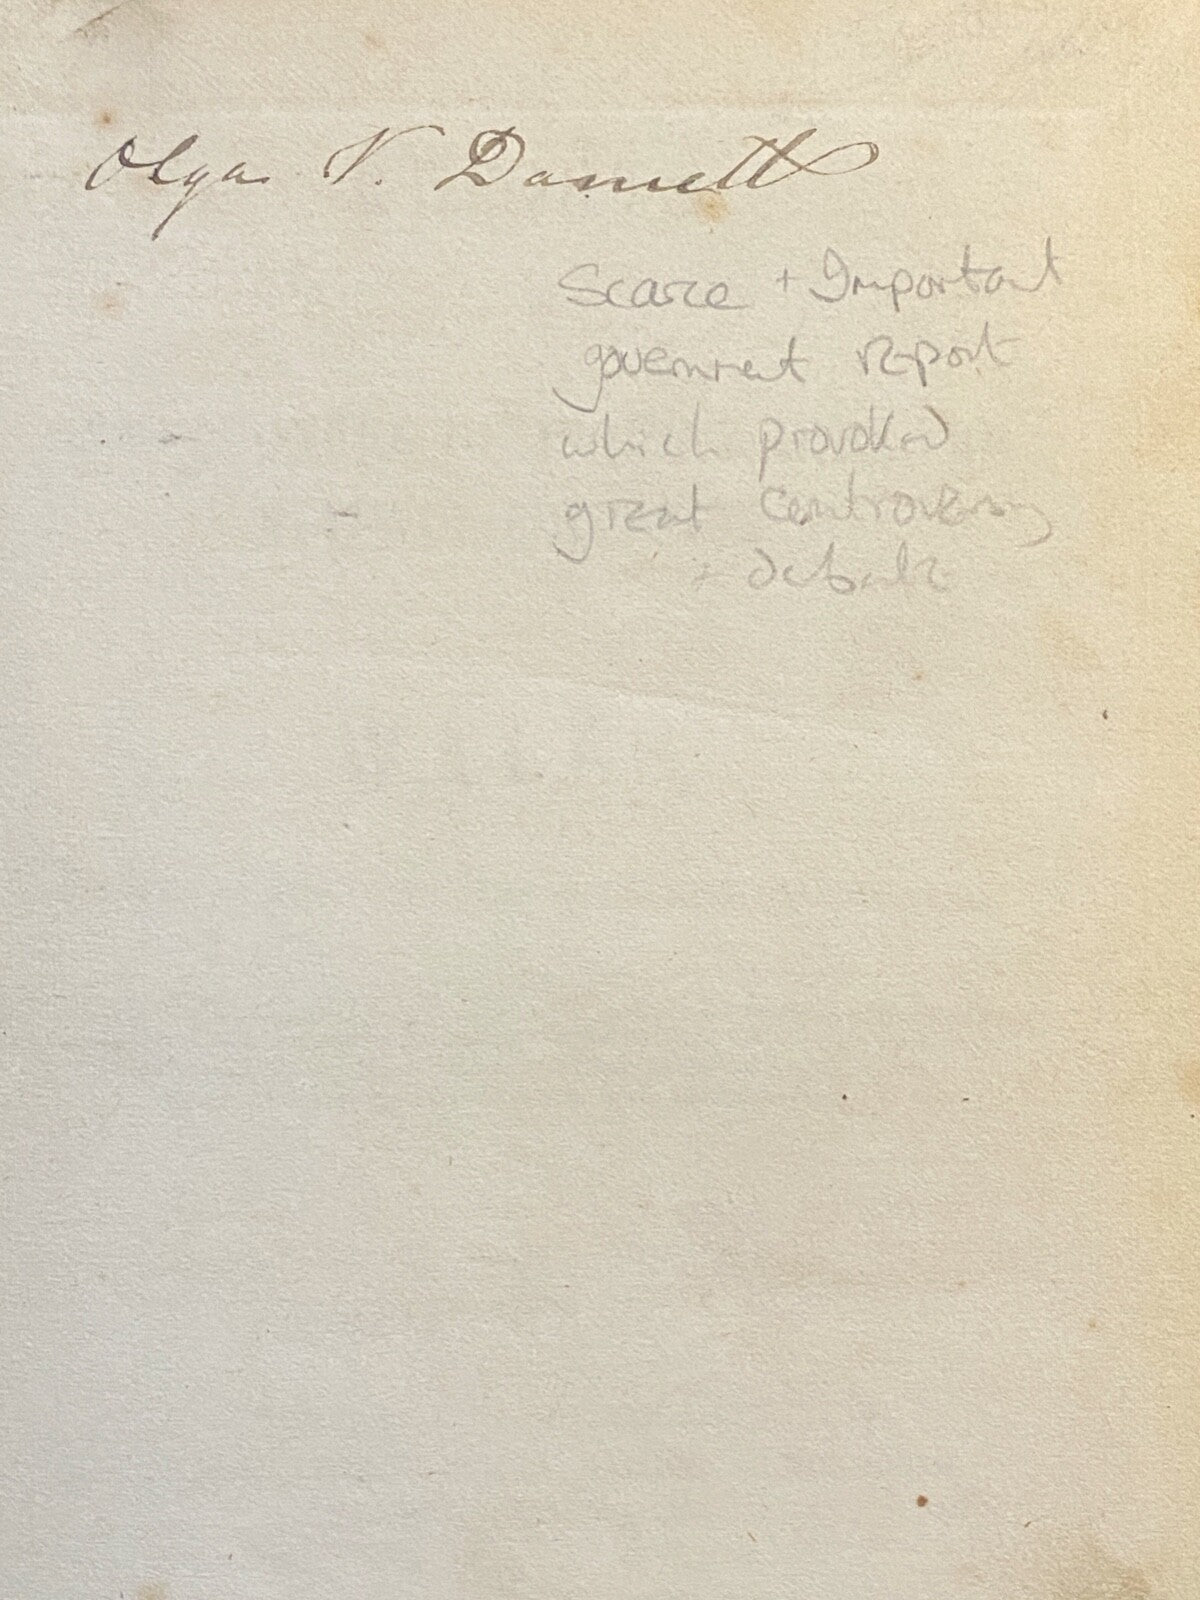 Olga V. Damett
Scarce + Important
government report
which provoked
great controversy
+ debate